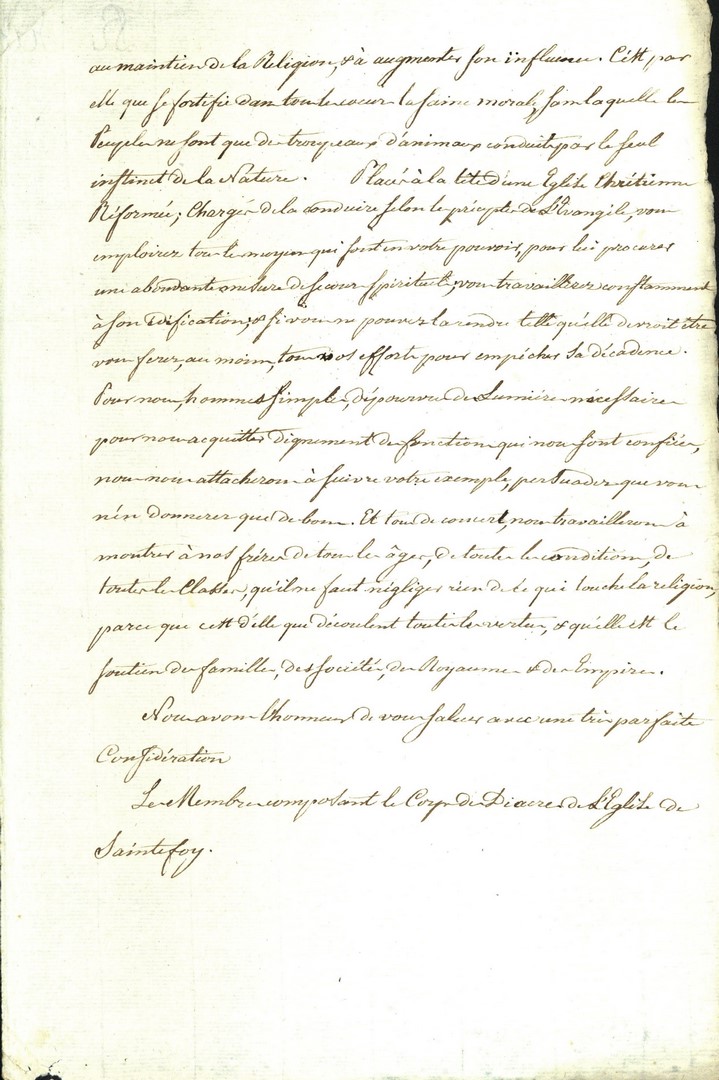 au maintien de la Religion, & à augmenter son influence. C'est par
elle que se fortifie dans tous les cœurs la saine morale, sans laquelle les
Peuples ne sont que des troupeaux d'animaux conduits par le seul
instinct de la Nature. Placés à la tête d'une Eglise Chrétienne
Réformée; Chargés de la conduire selon les préceptes de L'Evangile, vous
emploirez tous les moyens qui sont en votre pouvoir, pour lui procurer
une abondante mesure de secours spirituels; vous travaillerez constamment
à son édification; & si vous ne pouvez la rendre telle qu'elle devroit être
vous ferez, au moins, tous vos efforts pour empêcher sa décadence.
Pour nous, hommes simples, dépourvus des Lumières nécessaires
pour nous acquitter dignement des fonctions qui nous sont confiées,
nous nous attacherons à suivre votre exemple, persuadez que vous
n'en donnerez que de bons. Et tous de concert, nous travaillerons à
montrer à nos frères de tous les âges, de toutes les conditions, de
toutes les Classes, qu'il ne faut négliger rien de ce qui touche la religion,
parce que c'est d'elle que découlent toutes les vertus, & qu'elle est le
soutien des familles, des sociétés, des Royaumes & des Empires.
Nous avons l'honneur de vous saluer avec une très parfaite
Considération
Les Membres composant le Corps des Diacres de L'Eglise de
Saintefoy.